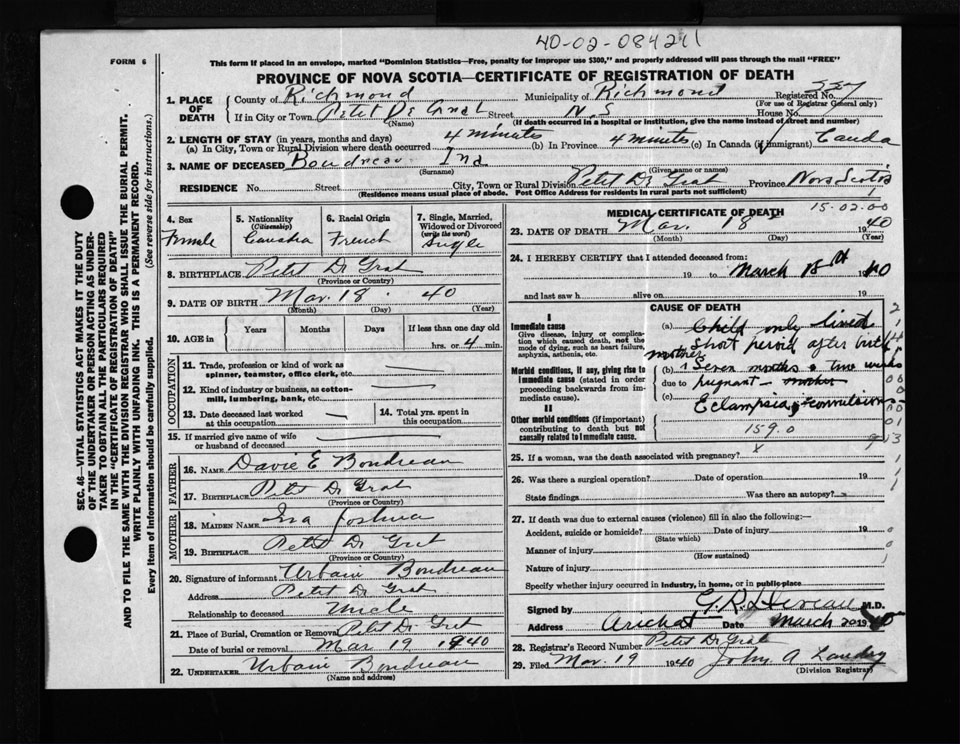 40-02-084211
FORM 6
This form if placed in an envelope, marked "Dominion Statistics—Free, penalty for improper use $300," and properly addressed will pass through the mail "FREE"
PROVINCE OF NOVA SCOTIA—CERTIFICATE OF REGISTRATION OF DEATH
1. PLACE OF DEATH County of Richmond Municipality of Richmond Registered No.
(For use of Registrar General only)
If in City or Town Petit De Grat Street N.S House No.
(Name) (If death occurred in a hospital or institution, give the name instead of street and number)
2. LENGTH OF STAY (in years, months and days)
(a) In City, Town or Rural Division where death occurred 4 minutes (b) In Province 4 minutes (c) In Canada (if immigrant) Canda
3. NAME OF DECEASED Boudreau Ina
(Surname) (Given name or names)
RESIDENCE No. Street City, Town or Rural Division Petit De Grat Province Nova Scotia
(Residence means usual place of abode. Post Office Address for residents in rural parts not sufficient)
SEC. 46—VITAL STATISTICS ACT MAKES IT THE DUTY
OF THE UNDERTAKER OR PERSON ACTING AS UNDER-
TAKER TO OBTAIN ALL THE PARTICULARS REQUIRED
IN THE "CERTIFICATE OF REGISTRATION OF DEATH"
AND TO FILE THE SAME WITH THE DIVISION REGISTRAR WHO SHALL ISSUE THE BURIAL PERMIT.
WRITE PLAINLY WITH UNFADING INK. THIS IS A PERMANENT RECORD.
Every item of information should be carefully supplied. (See reverse side for instructions.)
4. Sex 5. Nationality 6. Racial Origin 7. Single, Married,
(Citizenship) Widowed or Divorced
(write the word)
Female French Single
8. BIRTHPLACE Petit De Grat
(Province or Country)
9. DATE OF BIRTH Mar. 18 40
(Month) (Day) (Year)
10. AGE in Years Months Days If less than one day old
hrs. or 4 min.
OCCUPATION
11. Trade, profession or kind of work as
spinner, teamster, office clerk, etc.
12. Kind of industry or business, as cotton-
mill, lumbering, bank, etc.
13. Date deceased last worked at this occupation
14. Total yrs. spent in this occupation
15. If married give name of wife
or husband of deceased
FATHER
16. NAME Davie E Boudreau
17. BIRTHPLACE Petit De Grat
(Province or Country)
MOTHER
18. MAIDEN NAME Joshua
19. BIRTHPLACE Petit De Grat
(Province or Country)
20. Signature of informant Urbain Boudreau
Address Petit De Grat
Relationship to deceased Uncle
21. Place of Burial, Cremation or Removal Petit De Grat
Date of burial or removal Mar 19 1940
22. UNDERTAKER Urbain Boudreau
(Name and address)
MEDICAL CERTIFICATE OF DEATH 15-02-00
23. DATE OF DEATH Mar. 18 1940
(Month) (Day) (Year)
24. I HEREBY CERTIFY that I attended deceased from:
19 to March 18th 1940
and last saw h alive on 19
CAUSE OF DEATH
I
Immediate cause
Give disease, injury or complica-
tion which caused death, not the
mode of dying, such as heart failure,
asphyxia, asthenia, etc.
(a) Child only lived
short period after birth
Morbid conditions, if any, giving rise to
immediate cause (stated in order
proceeding backwards from im-
mediate cause).
mother
(b) Seven months &
due to pregnant
(c) Eclampsia & convulsions
II
Other morbid conditions (if important)
contributing to death but not
causally related to immediate cause.
159.0
25. If a woman, was the death associated with pregnancy?
26. Was there a surgical operation? Date of operation 19
State findings Was there an autopsy?
27. If death was due to external causes (violence) fill in also the following:—
Accident, suicide or homicide? Date of injury 19
(State which)
Manner of injury
(How sustained)
Nature of injury
Specify whether injury occurred in industry, in home, or in public place
Signed by G.R. Deveau M.D.
Address Arichat Date March 20 1940
28. Registrar's Record Number Petit De Grat
29. Filed Mar. 19 1940 John A Landry
(Division Registrar)